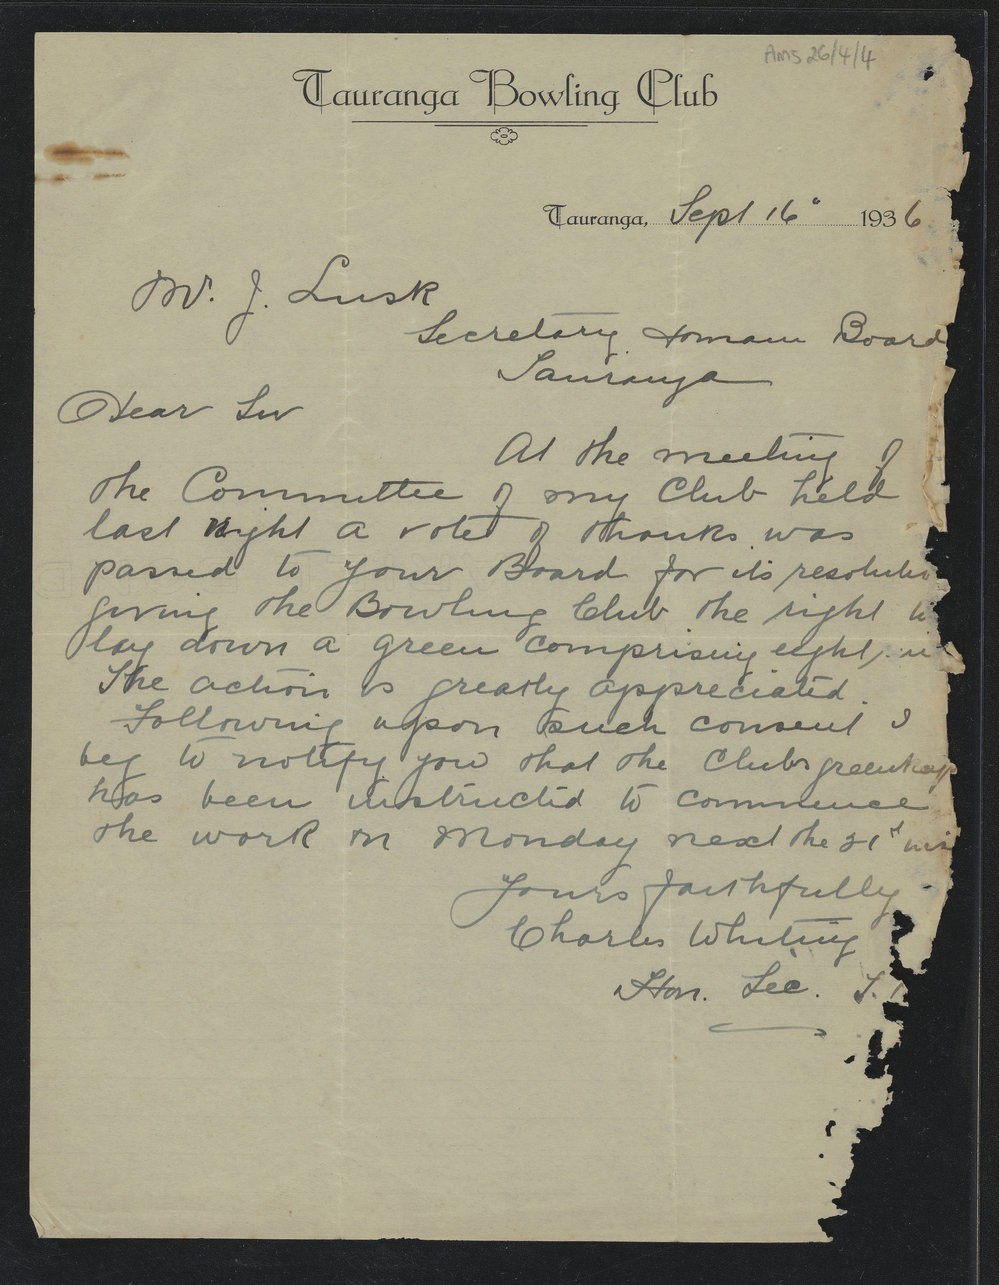 Ams 26/4/4
Tauranga Bowling Club
Tauranga, Sept 16" 1936
Mr. J. Lusk
Secretary Domain Board
Tauranga
Dear Sir
At the meeting of
the Committee of my Club held
last night a vote of thanks was
passed to your Board for its resolutio
giving the Bowling Club the right to
lay down a green comprising eight
The action is greatly appreciated
Following upon such consent I
beg to notify you that the Clubs greenkeep
has been instructed to commence
the work on Monday next the 21st ins
Yours faithfully
Charles Whiting
Hon. Sec. T.